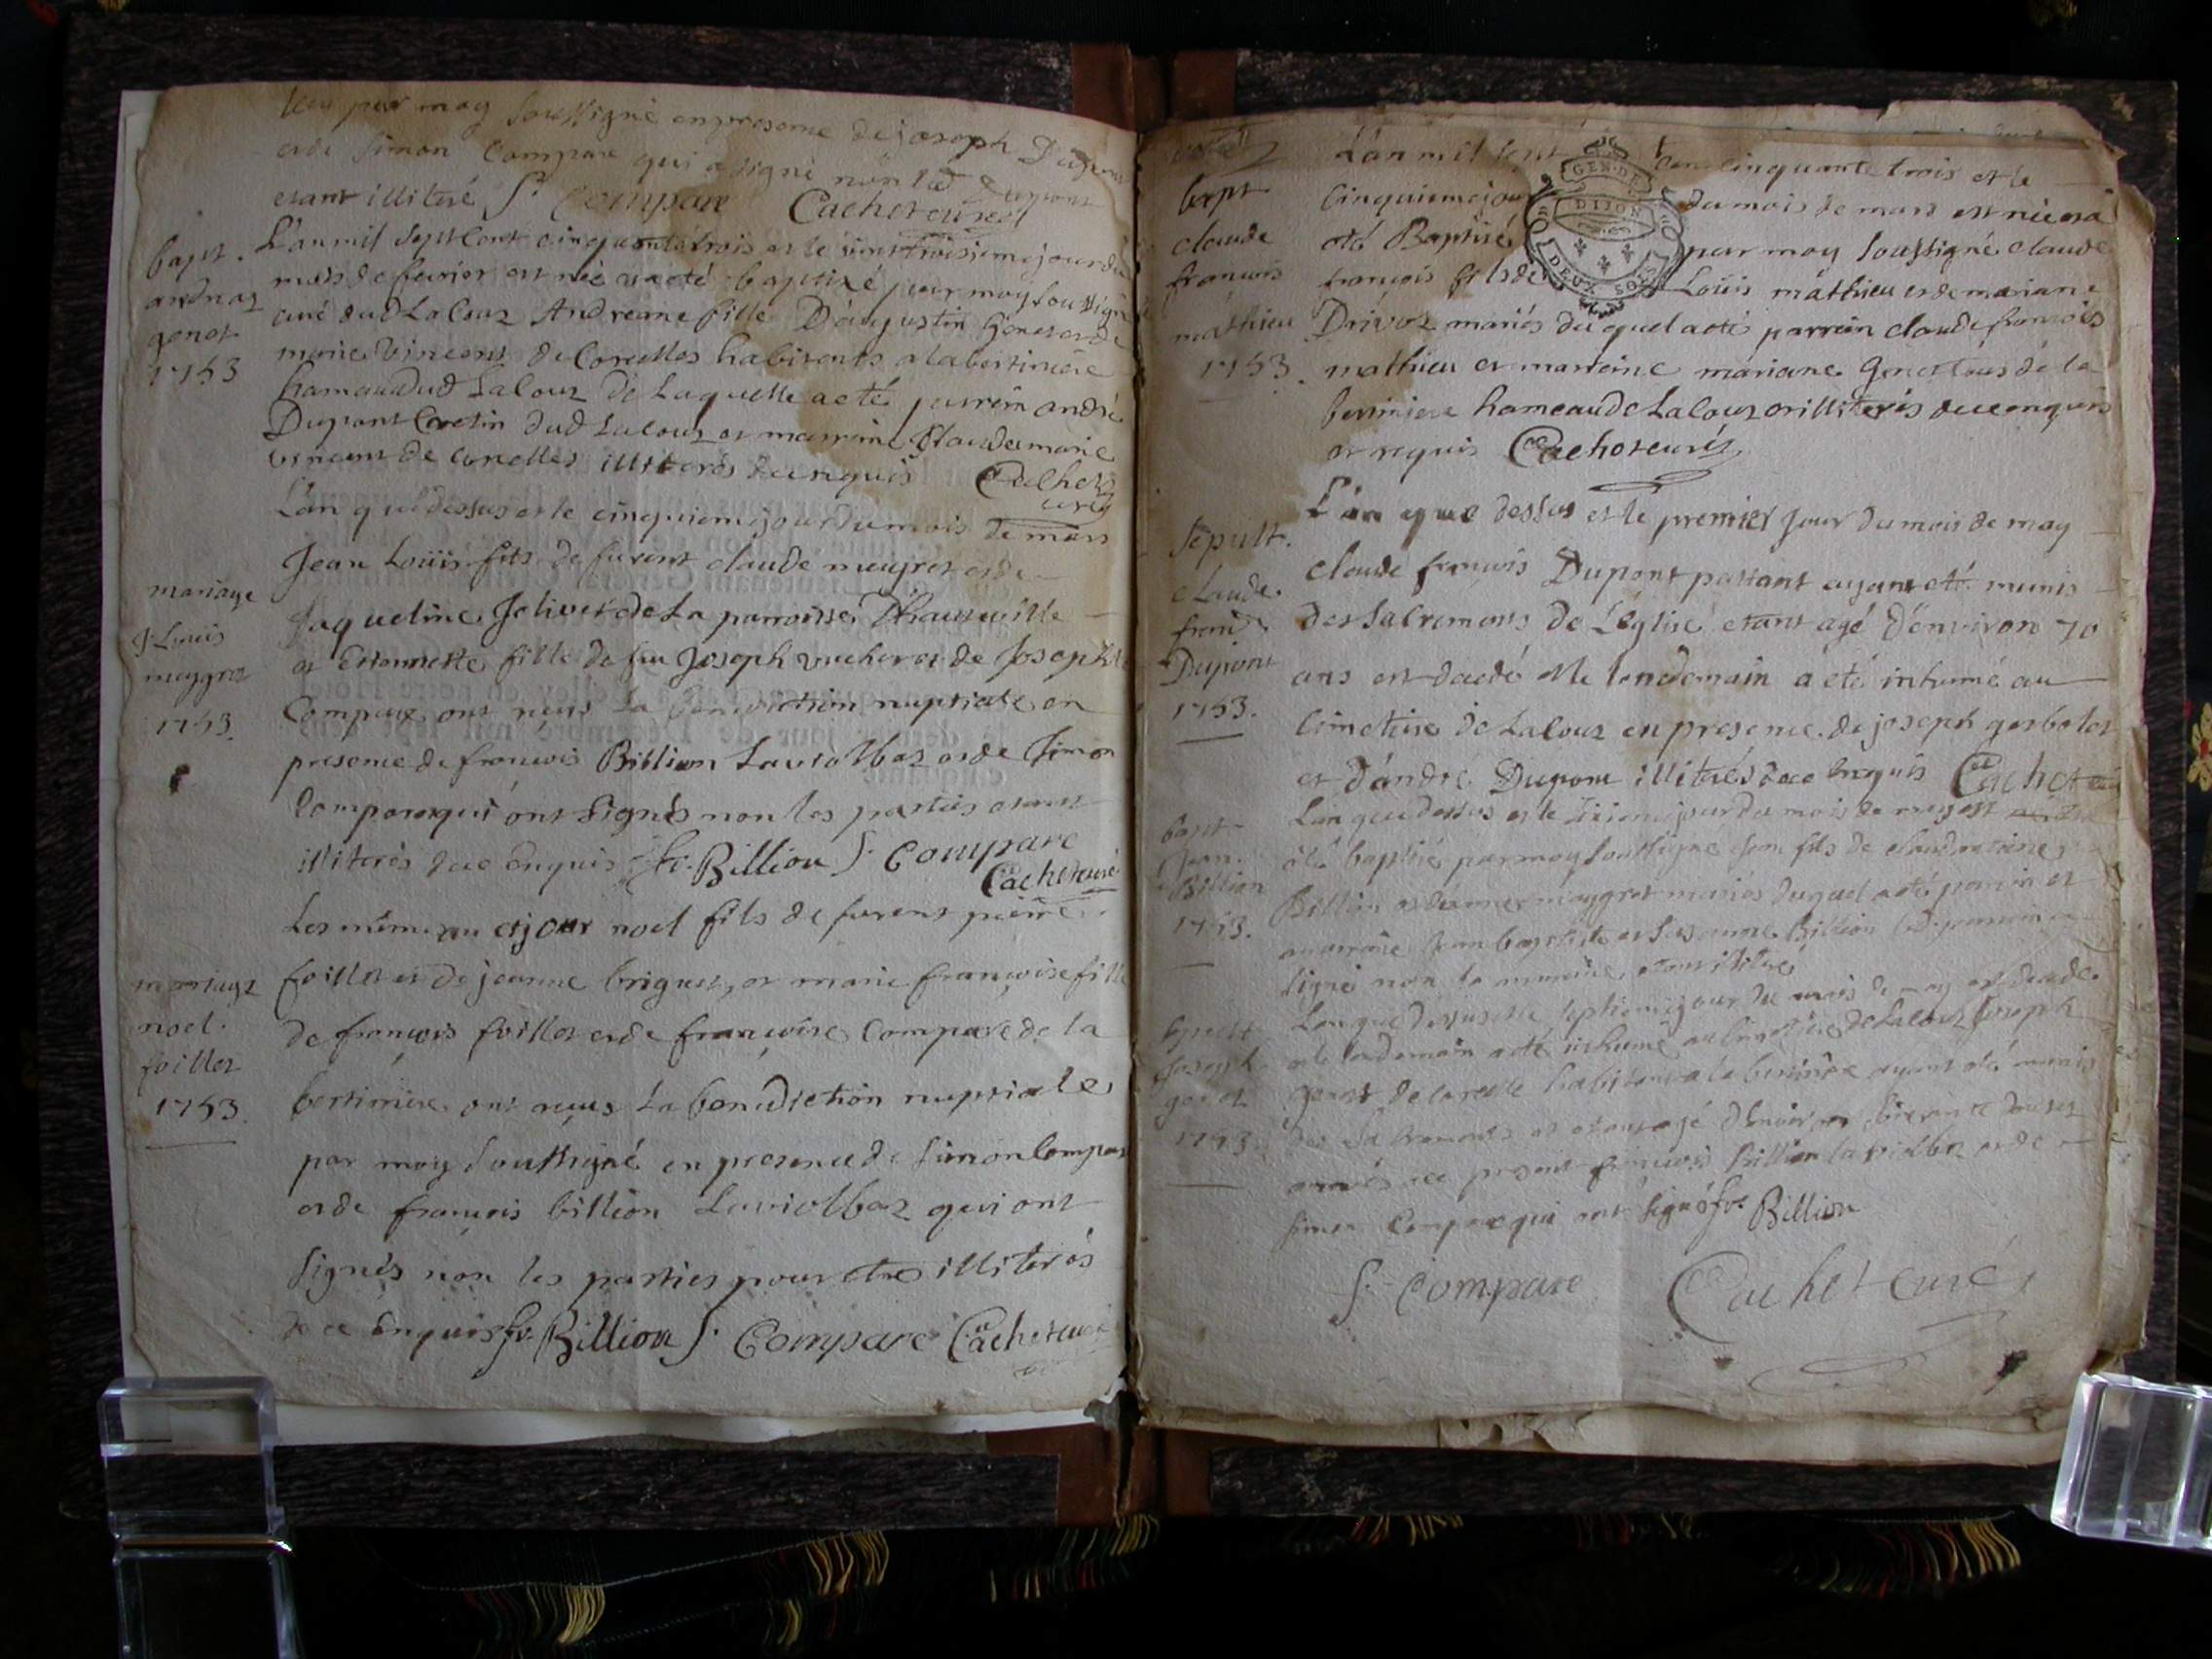 par moy soussigné en presence de joseph Dupont
et de simon Compare qui a signé non led Dupont
etant illitéré S. Compare Cachet curé
bapt.
andrea
genet
1753
L'an mil sept cent cinquante trois et le vint troisieme jour du
mois de fevrier est née et a eté baptizé par moy soussigné
curé dud Lalouz Andreane fille D'augustin Genet et de
marie vincent de Corcelles habitants a la bertiniere
hameau dud Lalouz de Laquelle a eté parrein andré
Dupont Cretin dud Lalouz et marreine Claude marie
vincent de corcelles illiterés de enquis Cachet
curé
mariage
J. Louis
meygret
1753
L'an que dessus et le cinquieme jour du mois de mars
Jean Loüis fils de furent claude meygret et de
Jaqueline Jolivet de La parroisse D'hauteville
et Estiennette fille de feu Joseph vucher et de Josephte
Compare ont reçus La benediction nuptiale en
presence de francois Billion Laviolbaz et de Simon
Compare qui ont signés non les parties etant
illiterés de ce enquis fr. Billion S. Compare
Cachet curé
mariage
noel
foillet
1753
Les même an et jour noel fils de furent pierre
foillet et de jeanne briguet, et marie francoise fille
de francois foillet et de francoise Compare de la
bertiniere ont reçus La benediction nuptiale
par moy soussigné en presence de Simon Compare
et de francois billion Laviolbaz qui ont
signés non les parties pour etre illiterés
de ce enquis fr. Billion S. Compare Cachet curé
bapt
claude
francois
mathieu
1753.
GEN. DE
DIJON
DEUX SOLS
L'an mil sept cent cinquante trois et le
Cinquieme jour du mois de mars est né et a
eté Baptisé par moy soussigné claude
francois fils de Loüis mathieu et de mariane
Drivoz mariés duquel a eté parrein claude francois
mathieu et marreine mariane Genet tous de la
berniere hameau de Lalouz et illiterés de ce enquis
et requis Cachet curé
sepult.
claude
franc.
Dupont
1753.
L'an que dessus et le premier jour du mois de may
claude francois Dupont passant ayant eté munis
des sacrements de L'église etant agé d'environ 70
ans est decedé et le lendemain a eté inhumé au
cimetiere de Lalouz en presence de joseph gerbolet
et d'andré Dupont illiterés de ce enquis Cachet curé
bapt
Jean
Billion
1753.
L'an que dessus et le jour du mois de may est
eté baptisé par moy soussigné Jean fils de claude antoine
Billion et d'anne meygret mariés duquel a eté parrein et
marreine Jean baptiste et Susanne Billion led. parrein a
signé non la marreine etant illiteré
sepult
Joseph
genet
1753.
L'an que dessus et le septieme jour du mois de may est decedé
et le lendemain a eté inhumé au cimetiere de Lalouz Joseph
genet de corcelle habitant a la bertiniere ayant eté munis
des sacrements et etant agé d'environ
presents francois Billion laviolbaz et de
simon Compare qui ont signé fr. Billion
S. Compare Cachet curé